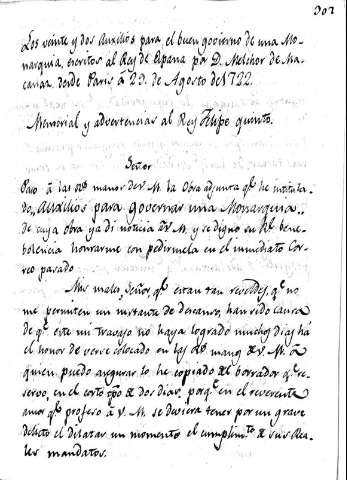 302
Los veinte y dos Auxilios para el buen govierno de una Mo-
narquia, escritos al Rey de España por D. Melchor de Ma-
canaz, desde Paris á 29. de Agosto de 1722.
Memorial y advertencias al Rey Felipe quinto.
Señor
Paso á las Rs manos de V. M. la Obra adjunta qe he intitula-
do, Auxilios para governar una Monarquia,,
de cuya obra ya di noticia a V. M. y se digno su Rl bene-
bolencia honrarme con pedirmela en el inmediato Cor-
reo pasado.
Mis males, Señor, qe estan tan reveldes, qe no
me permiten un instante de descanso, han sido causa
de qe este mi travajo no haya logrado muchos dias há
el honor de verse colocado en las Rs manos de V. M. á
quien puedo asegurar lo he copiado del borrador qe re-
servo, en el corto tpo de dos dias, porqe en el reverente
amor qe profeso á V. M. se deviera tener por un grave
delito el dilatar un momento el cumplimto de sus Rea-
les mandatos.